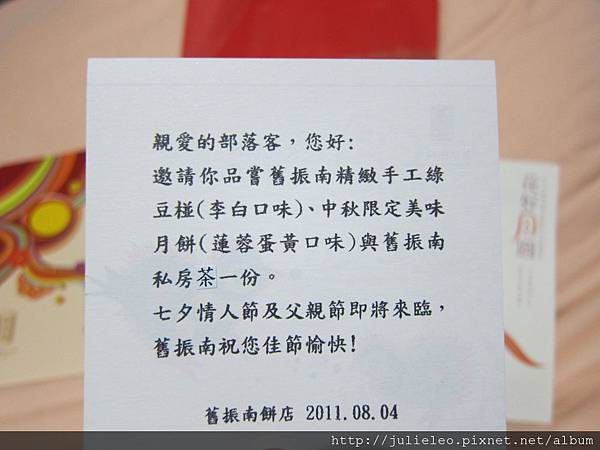 親愛的部落客，您好:
邀請你品嘗舊振南精緻手工綠
豆椪(李白口味)、中秋限定美味
月餅(蓮蓉蛋黃口味)與舊振南
私房茶一份。
七夕情人節及父親節即將來臨，
舊振南祝您佳節愉快!
舊振南餅店 2011.08.04
http://julieleo.pixnet.net/album